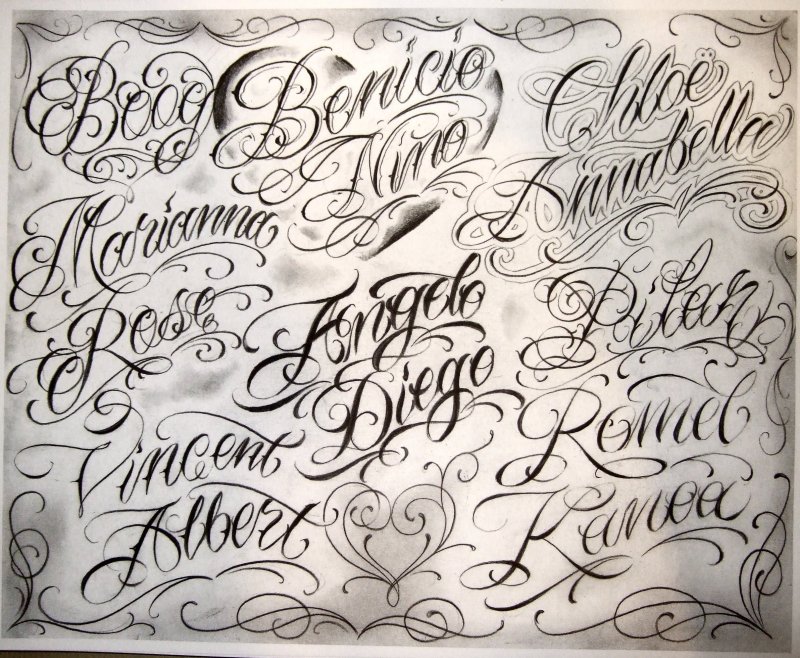 Boog
Benicio
Nino
Chloë
Annabella
Marianna
Rose
Angelo
Diego
Pilar
Vincent
Albert
Romel
Kanoa